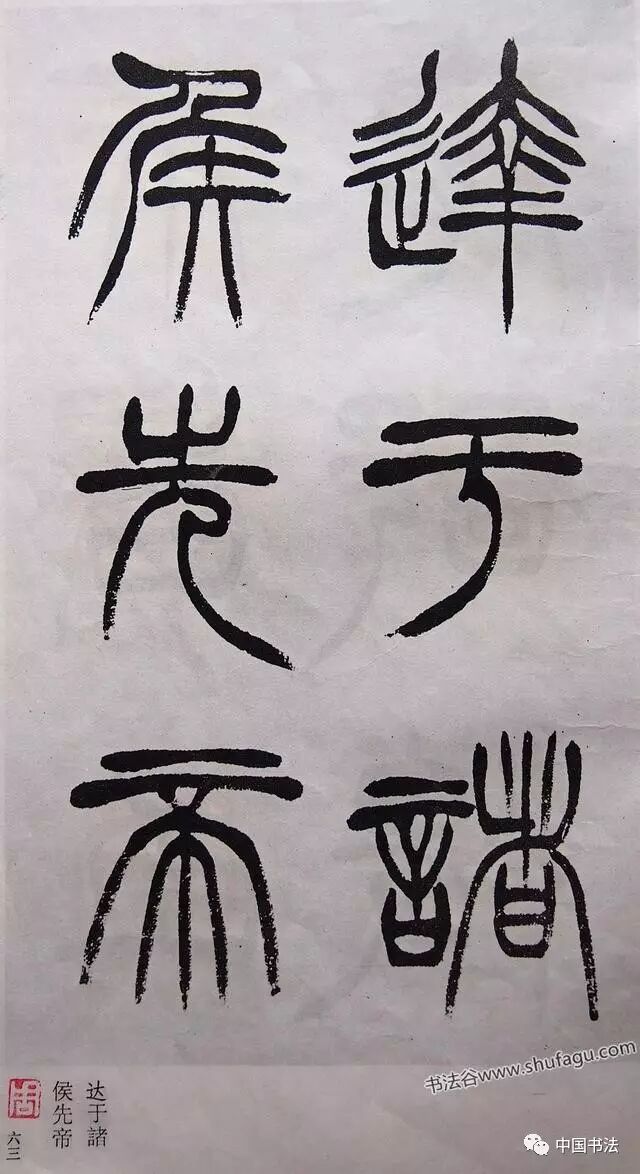 達于諸
侯先帝
达于諸
侯先帝
六三
书法谷www.shufagu.com
中国书法